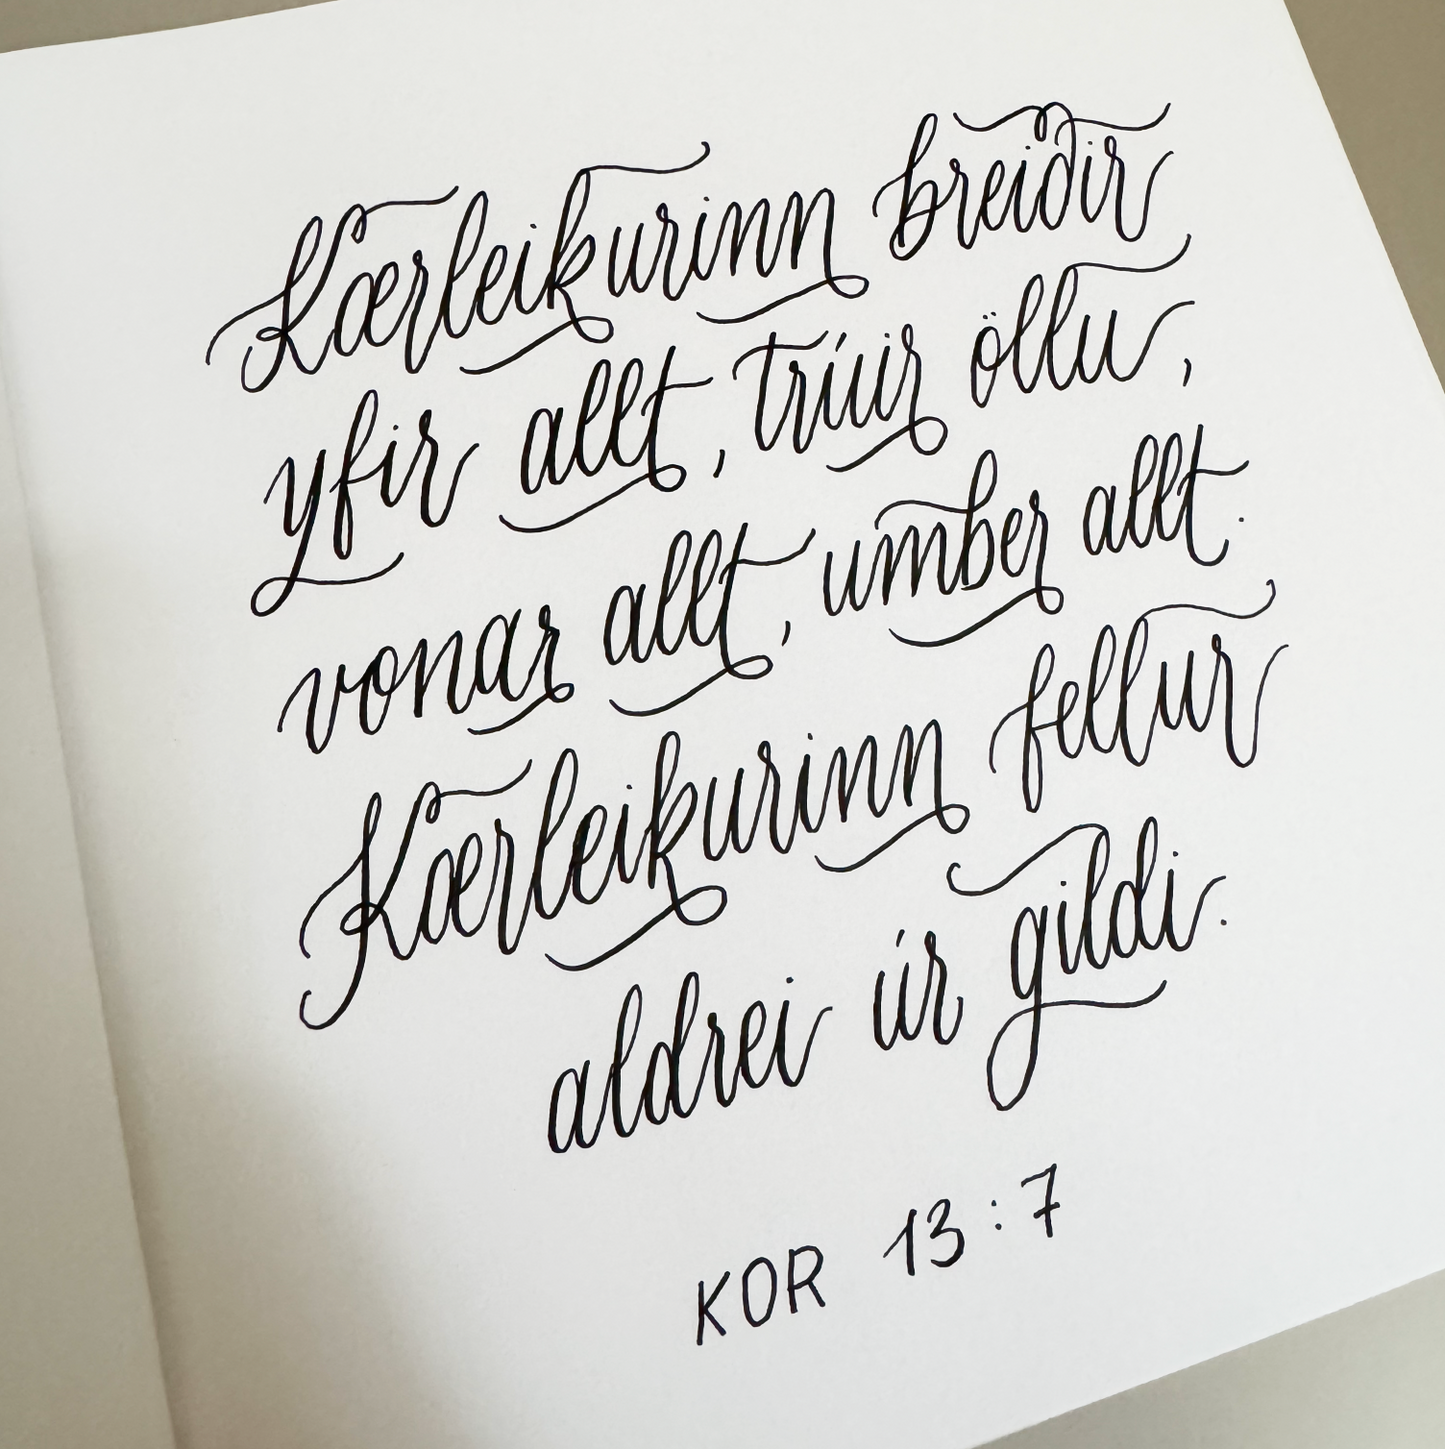 Kærleikurinn breiðir
yfir allt, trúir öllu,
vonar allt, umber allt.
Kærleikurinn fellur
aldrei úr gildi.
KOR 13:7